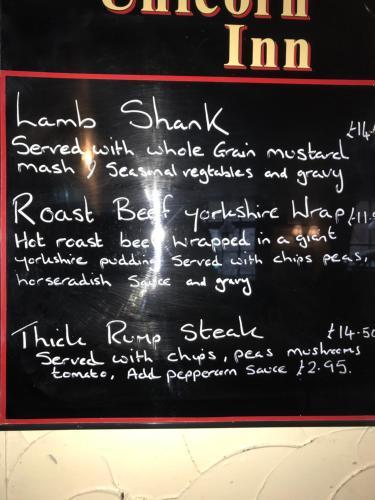 Unicorn
Inn
Lamb Shank £14.
Served with whole Grain mustard
mash, Seasonal regtables and gravy
Roast Beef yorkshire Wrap £11.
Hot roast beef wrapped in a giant
yorkshire pudding Served with chips peas,
horseradish Sauce and gravy
Thick Rump Steak £14.50
Served with chips, peas mushrooms
tomato, Add peppercorn Sauce £2.95.